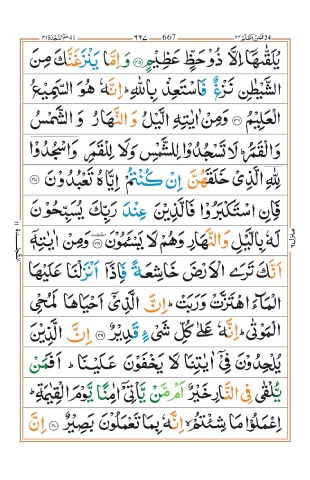 حٰمٓ السجدة ٤١ ٦٦٧ 667 فمن اظلم ٢٤
يُلَقّٰىهَاۤ اِلَّا ذُوْ حَظٍّ عَظِیْمٍ ﴿۳۵﴾ وَ اِمَّا یَنْزَغَنَّكَ مِنَ
الشَّیْطٰنِ نَزْغٌ فَاسْتَعِذْ بِاللّٰهِ ؕ اِنَّهٗ هُوَ السَّمِیْعُ
الْعَلِیْمُ ﴿۳۶﴾ وَ مِنْ اٰیٰتِهِ الَّیْلُ وَ النَّهَارُ وَ الشَّمْسُ
وَ الْقَمَرُ ؕ لَا تَسْجُدُوْا لِلشَّمْسِ وَ لَا لِلْقَمَرِ وَ اسْجُدُوْا
لِلّٰهِ الَّذِیْ خَلَقَهُنَّ اِنْ كُنْتُمْ اِیَّاهُ تَعْبُدُوْنَ ﴿۳۷﴾
فَاِنِ اسْتَكْبَرُوْا فَالَّذِیْنَ عِنْدَ رَبِّكَ یُسَبِّحُوْنَ
لَهٗ بِالَّیْلِ وَ النَّهَارِ وَ هُمْ لَا یَسْـَٔمُوْنَ ﴿۳۸﴾ وَ مِنْ اٰیٰتِهٖۤ
اَنَّكَ تَرَی الْاَرْضَ خَاشِعَةً فَاِذَاۤ اَنْزَلْنَا عَلَیْهَا
الْمَآءَ اهْتَزَّتْ وَ رَبَتْ ؕ اِنَّ الَّذِیْۤ اَحْیَاهَا لَمُحْیِ
الْمَوْتٰی ؕ اِنَّهٗ عَلٰی كُلِّ شَیْءٍ قَدِیْرٌ ﴿۳۹﴾ اِنَّ الَّذِیْنَ
یُلْحِدُوْنَ فِیْۤ اٰیٰتِنَا لَا یَخْفَوْنَ عَلَیْنَا ؕ اَفَمَنْ
یُّلْقٰی فِی النَّارِ خَیْرٌ اَمْ مَّنْ یَّاْتِیْۤ اٰمِنًا یَّوْمَ الْقِیٰمَةِ ؕ
اِعْمَلُوْا مَا شِئْتُمْ ۙ اِنَّهٗ بِمَا تَعْمَلُوْنَ بَصِیْرٌ ﴿۴۰﴾ اِنَّ